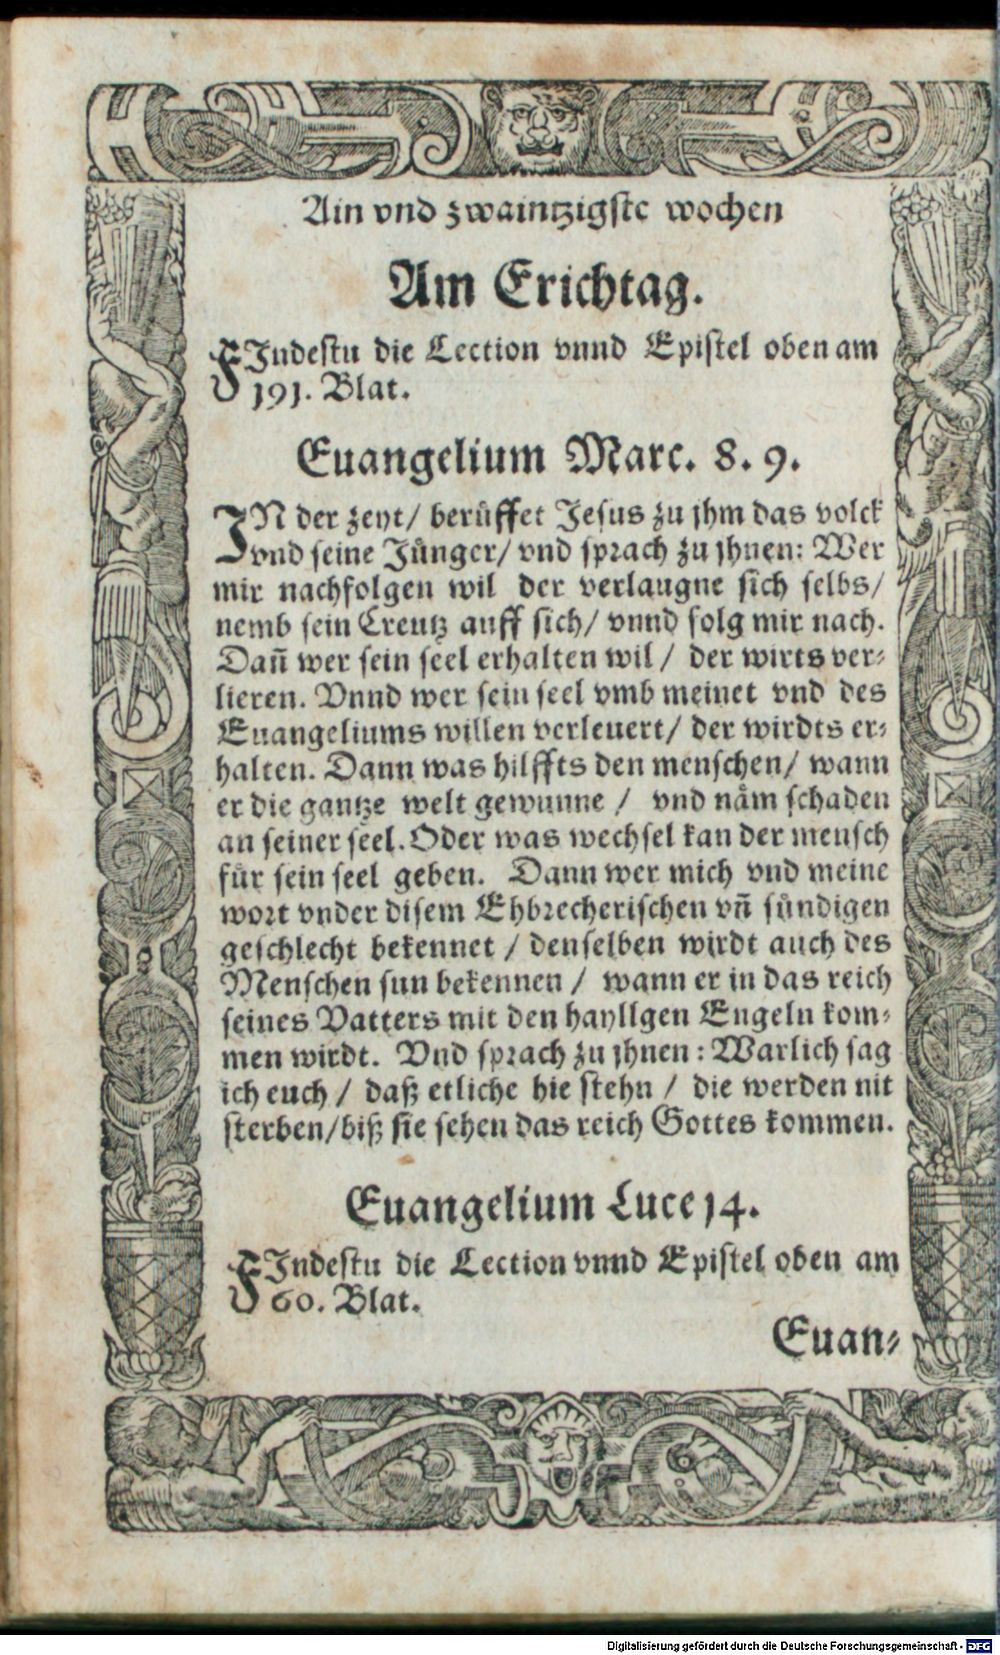 Ain vnd zwaintzigste wochen
Am Erichtag.
FIndestu die Lection vnnd Epistel oben am
191. Blat.
Euangelium Marc. 8. 9.
IN der zeyt/ berüffet Jesus zu jhm das volck
vnd seine Jünger/ vnd sprach zu jhnen: Wer
mir nachfolgen wil der verlaugne sich selbs/
nemb sein Creutz auff sich/ vnnd folg mir nach.
Dañ wer sein seel erhalten wil / der wirts ver-
lieren. Vnnd wer sein seel vmb meinet vnd des
Euangeliums willen verleuert/ der wirdts er-
halten. Dann was hilffts den menschen/ wann
er die gantze welt gewunne / vnd näm schaden
an seiner seel. Oder was wechsel kan der mensch
für sein seel geben. Dann wer mich vnd meine
wort vnder disem Ehbrecherischen vñ sündigen
geschlecht bekennet / denselben wirdt auch des
Menschen sun bekennen / wann er in das reich
seines Vatters mit den hayllgen Engeln kom-
men wirdt. Vnd sprach zu jhnen: Warlich sag
ich euch / daß etliche hie stehn / die werden nit
sterben/biß sie sehen das reich Gottes kommen.
Euangelium Luce 14.
FIndestu die Lection vnnd Epistel oben am
60. Blat.
Euan-
Digitalisierung gefördert durch die Deutsche Forschungsgemeinschaft - DFG